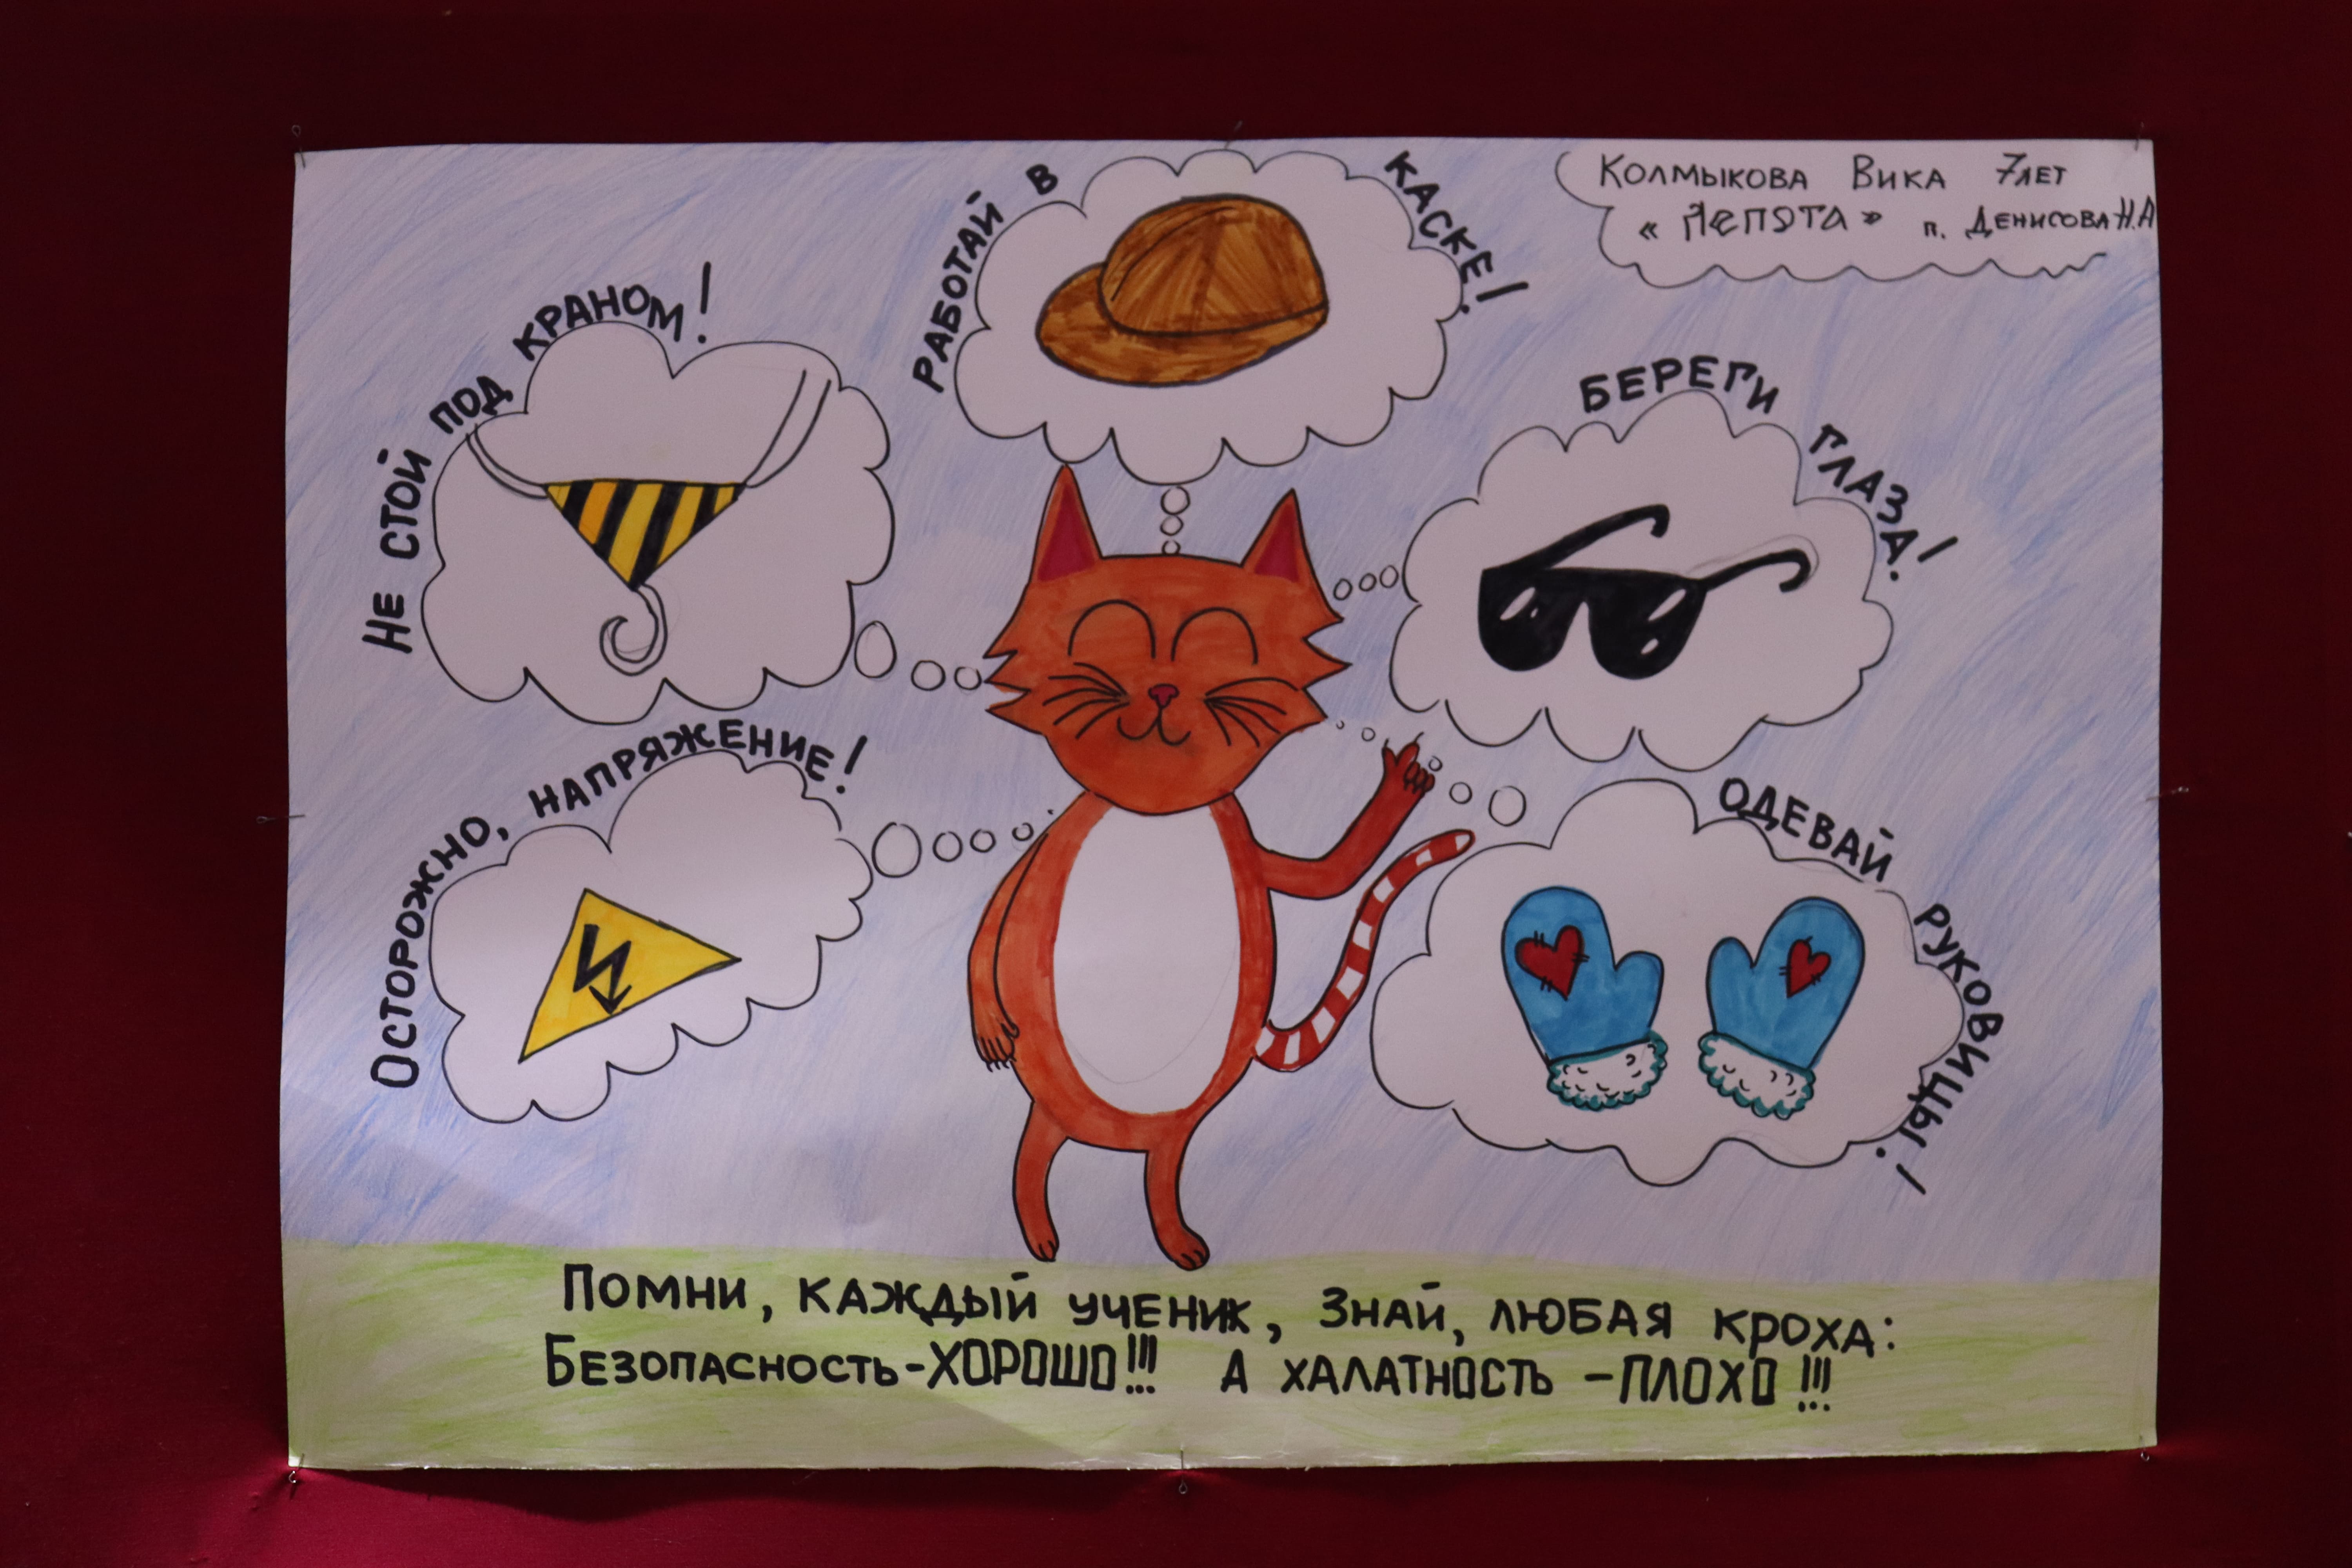 Колмыкова Вика 7 лет
« Лепота » п. Денисова Н.А
Работай в каске!
Не стой под краном!
Береги глаза!
Осторожно, напряжение!
Одевай рукавицы!
Помни, каждый ученик, Знай, любая кроха:
Безопасность-ХОРОШО!!! А халатность -ПЛОХО!!!